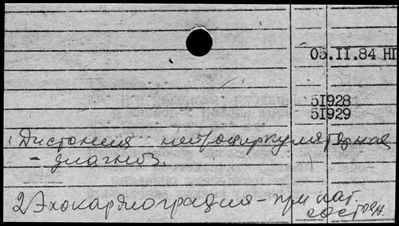 05.II.84 НП
51928
51929
Дистония нейроциркуляторная
- диагноз.
2) Эхокардиография - при пат.
состоян.